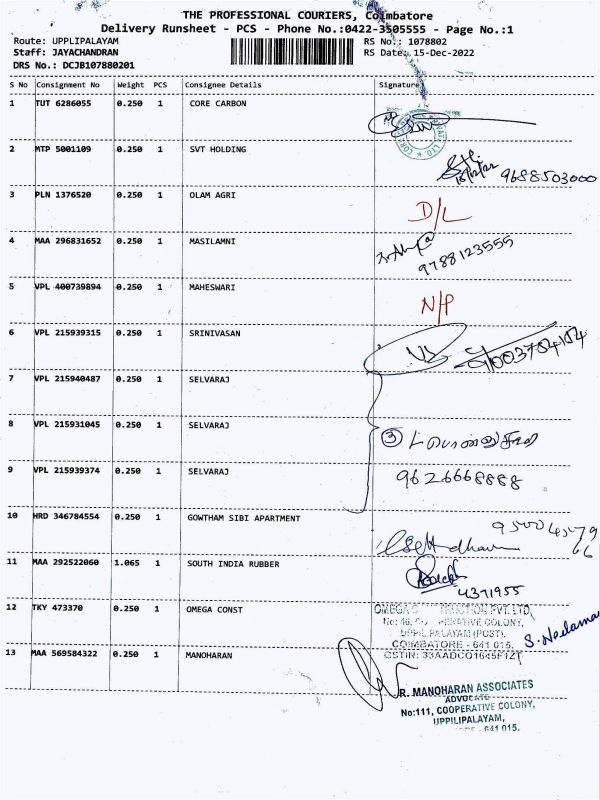 THE PROFESSIONAL COURIERS, Coimbatore
Delivery Runsheet - PCS - Phone No.:0422-3505555 - Page No.:1
Route: UPPLIPALAYAM RS No.: 1078802
Staff: JAYACHANDRAN RS Date: 15-Dec-2022
DRS No.: DCJB107880201
S No Consignment No Weight PCS Consignee Details Signature
1 TUT 6286055 0.250 1 CORE CARBON
2 MTP 5001109 0.250 1 SVT HOLDING
15/12/22 9688503000
3 PLN 1376520 0.250 1 OLAM AGRI D/L
4 MAA 296831652 0.250 1 MASILAMNI
9788123555
5 VPL 400739894 0.250 1 MAHESWARI N/P
6 VPL 215939315 0.250 1 SRINIVASAN
7 VPL 215940487 0.250 1 SELVARAJ
8 VPL 215931045 0.250 1 SELVARAJ
3
9 VPL 215939374 0.250 1 SELVARAJ
9626668888
10 HRD 346784554 0.250 1 GOWTHAM SIBI APARTMENT
11 MAA 292522060 1.065 1 SOUTH INDIA RUBBER
4371955
12 TKY 473370 0.250 1 OMEGA CONST
PVT. LTD.
COLONY,
PALAYAM (POST),
COIMBATORE - 641 015.
S. Neelama
GSTIN: 33AADCO1645F1ZT
13 MAA 569584322 0.250 1 MANOHARAN
R. MANOHARAN ASSOCIATES
ADVOCATE
No:111, COOPERATIVE COLONY,
UPPILIPALAYAM,
641 015.